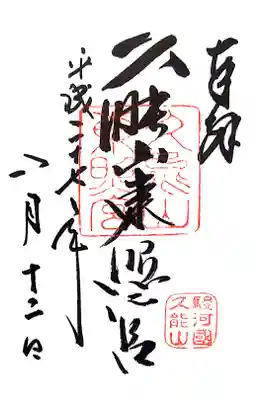 奉拝
久能山東照宮
平成二十七年
八月十二日
駿河國
久能山